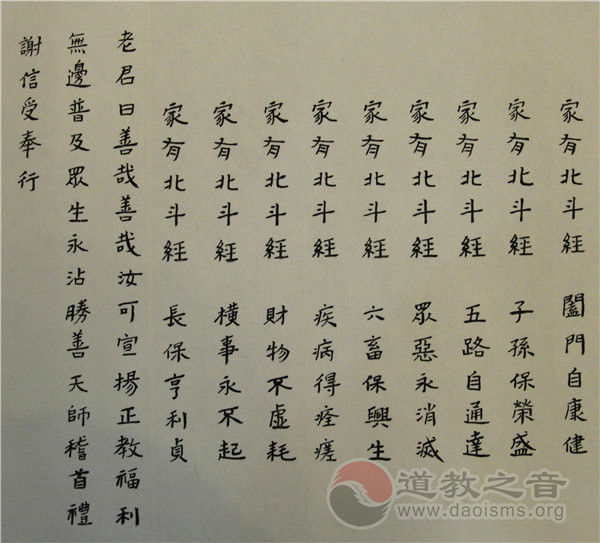 家有北斗經 闔門自康健
家有北斗經 子孫保榮盛
家有北斗經 五路自通達
家有北斗經 眾惡永消滅
家有北斗經 六畜保興生
家有北斗經 疾病得痊瘥
家有北斗經 財物不虛耗
家有北斗經 橫事永不起
家有北斗經 長保亨利貞
老君曰善哉善哉汝可宣揚正教福利
無邊普及眾生永沾勝善天師稽首禮
謝信受奉行
道教之音
www.daoisms.org